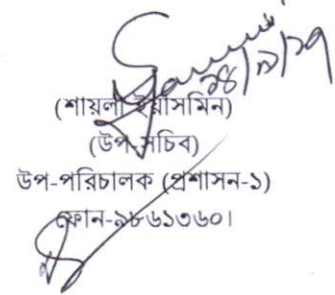 (শায়লা ইয়াসমিন)
(উপ-সচিব)
উপ-পরিচালক (প্রশাসন-১)
ফোন-৯৮৬১৩৬০।